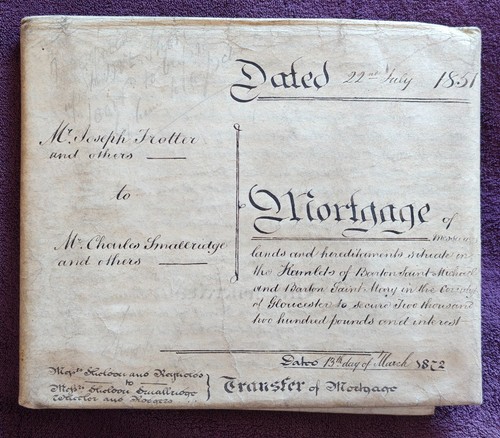 Dated 22nd July 1851
Mr. Joseph Trotter
and others
to
Mr. Charles Smallridge
and others
Mortgage of
lands and hereditaments situate in
the Hamlets of Barton Saint Michael
and Barton Saint Mary in the County
of Gloucester to secure Two thousand
two hundred pounds and interest
Dated 13th day of March 1872
Messrs Sheldon and
to
Messrs Sheldon Smallridge
Wheeler and Rodgers
Transfer of Mortgage